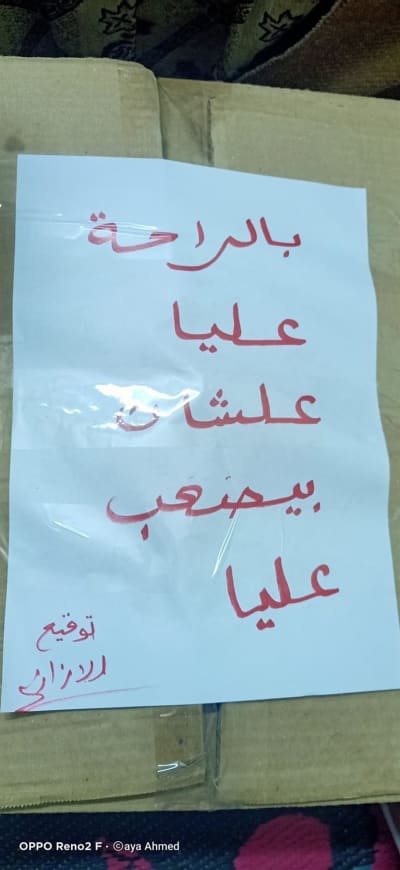 بالراحة
عليا
علشان
بيصعب
عليا
توقيع
OPPO Reno2 F · ©aya Ahmed